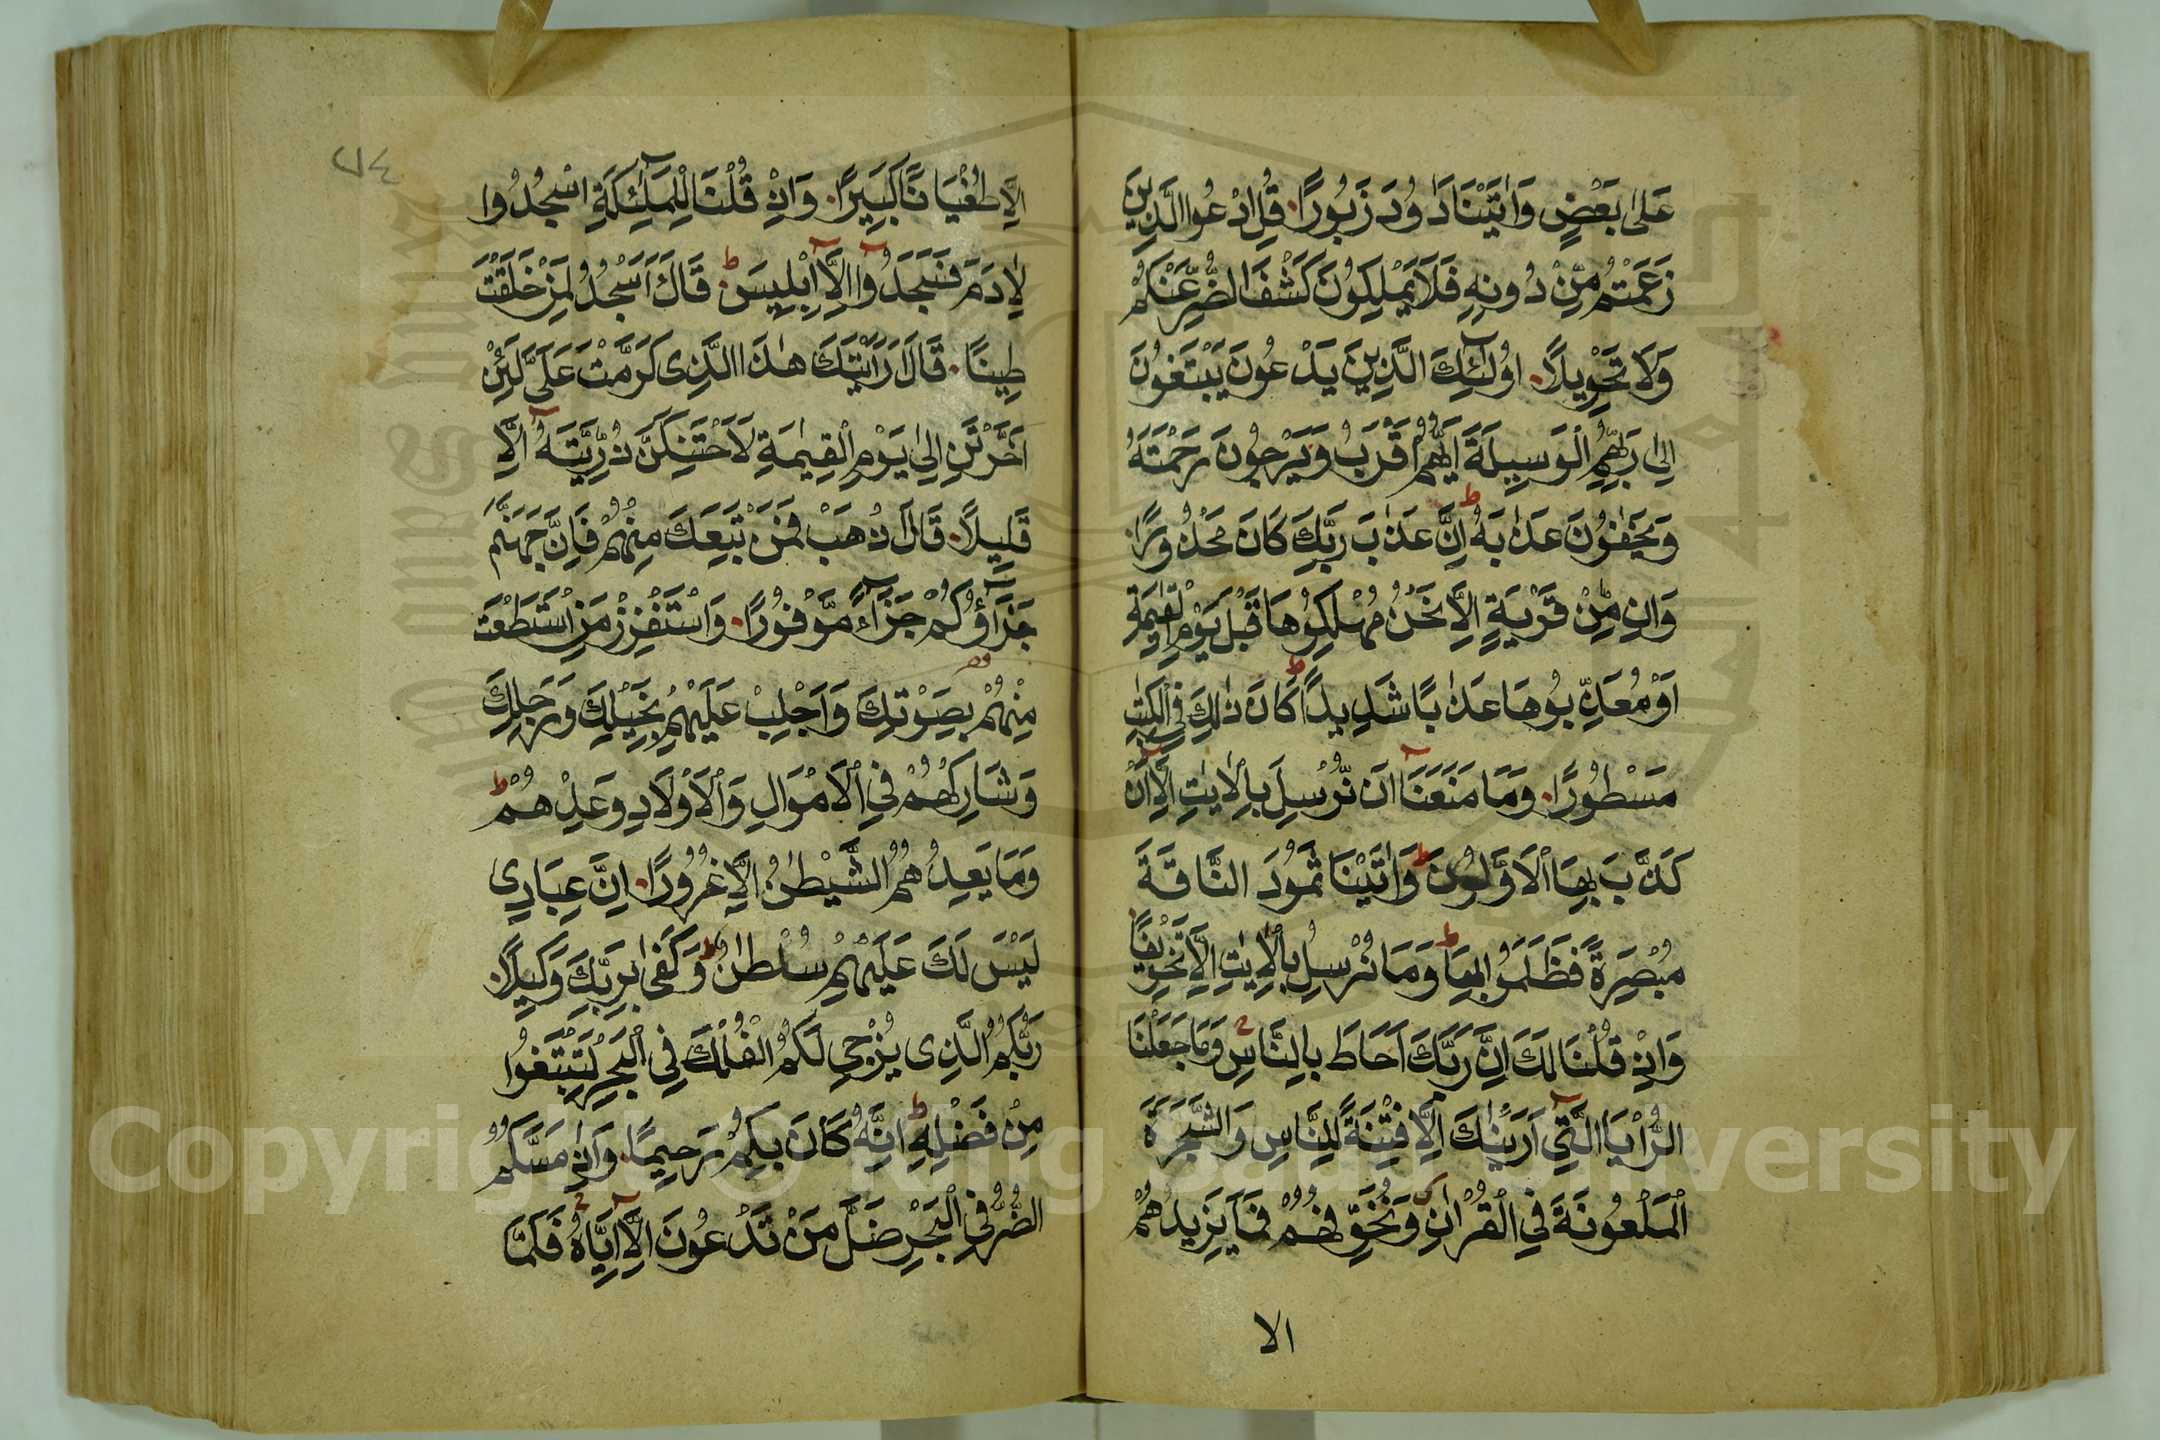 عَلٰى بَعْضٍ وَاٰتَيْنَا دَاوُدَ زَبُورًا۰ قُلِ ادْعُوا الَّذِينَ
زَعَمْتُمْ مِّنْ دُونِهٖ فَلَا يَمْلِكُونَ كَشْفَ الضُّرِّ عَنْكُمْ
وَلَا تَحْوِيلًا۰ اُولٰٓئِكَ الَّذِينَ يَدْعُونَ يَبْتَغُونَ
اِلٰى رَبِّهِمُ الْوَسِيلَةَ اَيُّهُمْ اَقْرَبُ وَيَرْجُونَ رَحْمَتَهُ
وَيَخَافُونَ عَذَابَهُ ط اِنَّ عَذَابَ رَبِّكَ كَانَ مَحْذُورًا۰
وَاِنْ مِّنْ قَرْيَةٍ اِلَّا نَحْنُ مُهْلِكُوهَا قَبْلَ يَوْمِ الْقِيٰمَةِ
اَوْ مُعَذِّبُوهَا عَذَابًا شَدِيدًا ط كَانَ ذٰلِكَ فِي الْكِتٰبِ
مَسْطُورًا۰ وَمَا مَنَعَنَآ اَنْ نُّرْسِلَ بِالْاٰيٰتِ اِلَّآ اَنْ
كَذَّبَ بِهَا الْاَوَّلُونَ ط وَاٰتَيْنَا ثَمُودَ النَّاقَةَ
مُبْصِرَةً فَظَلَمُوا بِهَا ط وَمَا نُرْسِلُ بِالْاٰيٰتِ اِلَّا تَخْوِيفًا۰
وَاِذْ قُلْنَا لَكَ اِنَّ رَبَّكَ اَحَاطَ بِالنَّاسِ وَمَا جَعَلْنَا
الرُّاْيَا الَّتِيٓ اَرَيْنٰكَ اِلَّا فِتْنَةً لِلنَّاسِ وَالشَّجَرَةَ
الْمَلْعُونَةَ فِي الْقُرْاٰنِ وَنُخَوِّفُهُمْ فَمَا يَزِيدُهُمْ
الا
اِلَّا طُغْيَانًا كَبِيرًا۰ وَاِذْ قُلْنَا لِلْمَلٰٓئِكَةِ اسْجُدُوا
لِاٰدَمَ فَسَجَدُوٓا اِلَّآ اِبْلِيسَ ط قَالَ ءَاَسْجُدُ لِمَنْ خَلَقْتَ
طِينًا۰ قَالَ اَرَاَيْتَكَ هٰذَا الَّذِى كَرَّمْتَ عَلَيَّ لَئِنْ
اَخَّرْتَنِ اِلٰى يَوْمِ الْقِيٰمَةِ لَاَحْتَنِكَنَّ ذُرِّيَّتَهُٓ اِلَّا
قَلِيلًا۰ قَالَ اذْهَبْ فَمَنْ تَبِعَكَ مِنْهُمْ فَاِنَّ جَهَنَّمَ
جَزَآؤُكُمْ جَزَآءً مَّوْفُورًا۰ وَاسْتَفْزِزْ مَنِ اسْتَطَعْتَ
مِنْهُمْ بِصَوْتِكَ وَاَجْلِبْ عَلَيْهِمْ بِخَيْلِكَ وَرَجِلِكَ
وَشَارِكْهُمْ فِي الْاَمْوَالِ وَالْاَوْلَادِ وَعِدْهُمْ ط
وَمَا يَعِدُهُمُ الشَّيْطٰنُ اِلَّا غُرُورًا۰ اِنَّ عِبَادِى
لَيْسَ لَكَ عَلَيْهِمْ سُلْطٰنٌ ط وَكَفٰى بِرَبِّكَ وَكِيلًا۰
رَبُّكُمُ الَّذِى يُزْجِي لَكُمُ الْفُلْكَ فِي الْبَحْرِ لِتَبْتَغُوا
مِنْ فَضْلِهٖ ط اِنَّهُ كَانَ بِكُمْ رَحِيمًا۰ وَاِذَا مَسَّكُمُ
الضُّرُّ فِي الْبَحْرِ ضَلَّ مَنْ تَدْعُونَ اِلَّآ اِيَّاهُ فَلَمَّا
Copyright © King Saud University